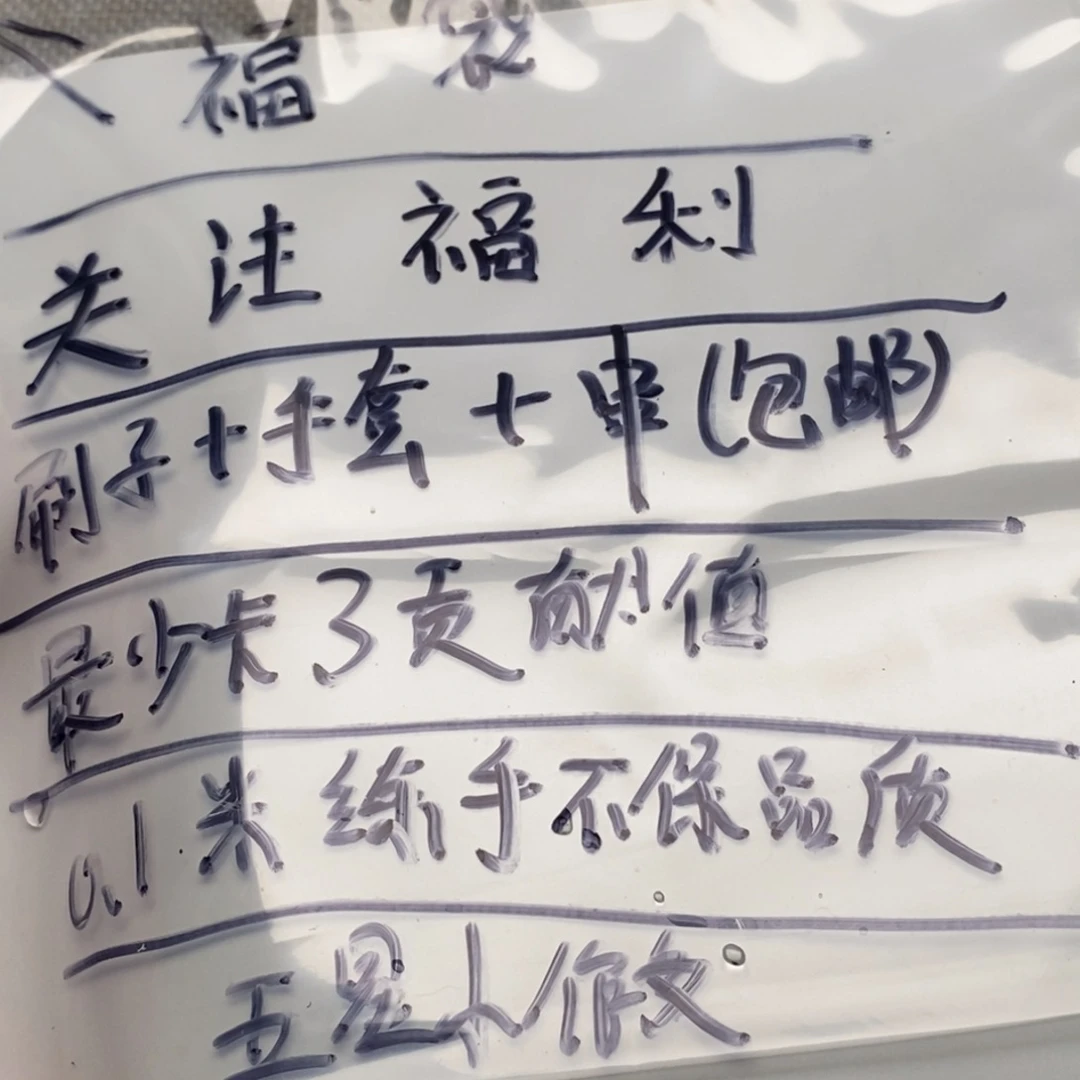 福袋
关注福利
刷子+手套+串(包邮)
最少卡了贡献值
0.1米练手不保品质
五星小作文